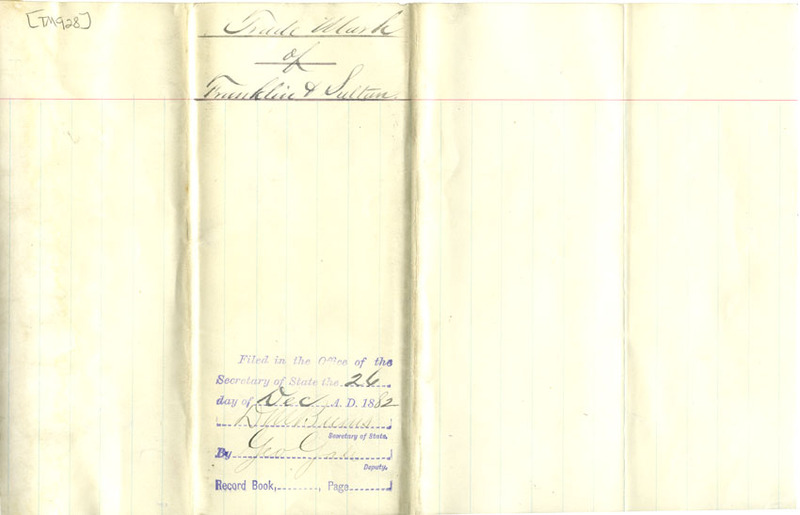 [TM928]
Trade Mark
of
Franklin & Sultan.
Filed in the Office of the
Secretary of State the 26
day of Dec A. D. 1882
Secretary of State.
By Geo
Deputy.
Record Book, , Page